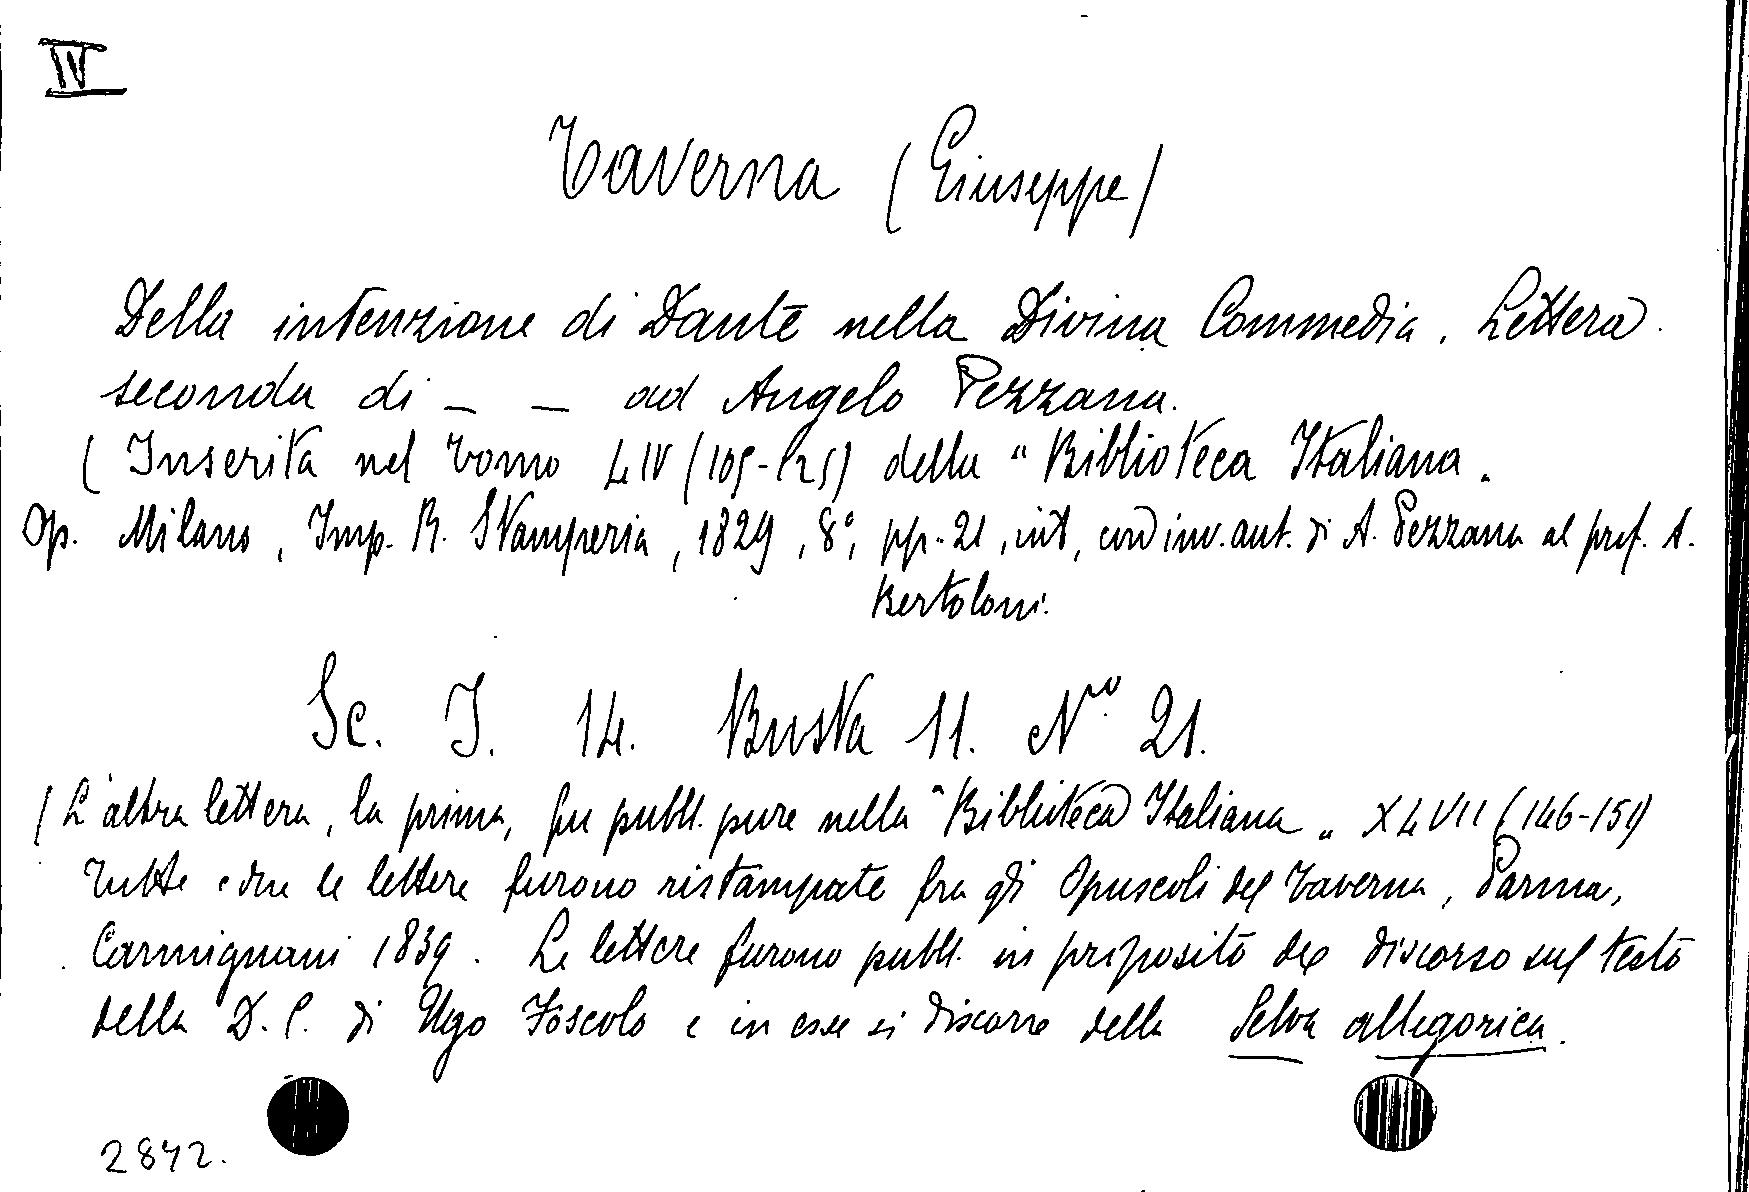 IV
Taverna (Giuseppe)
Della intenzione di Dante nella Divina Commedia. Lettera
seconda di _ _ ad Angelo Pezzana.
(Inserita nel Tomo LIV (109-125) della "Biblioteca Italiana"
Op. Milano, Imp. R. Stamperia, 1829, 8°, pp. 21, int, con inv. aut. di A. Pezzana al prof. A.
Bertoloni.
Sc. I. 14. Busta 11. Nro 21.
(L'altra lettera, la prima, fu pubbl. pure nella "Biblioteca Italiana" XLVII (146-151)
Tutte e due le lettere furono ristampate fra gli Opuscoli del Taverna, Parma,
Carmignani 1839. Le lettere furono pubbl. in proposito del discorso sul testo
della D. C. di Ugo Foscolo e in esse si discorre della Selva allegorica.
2842.